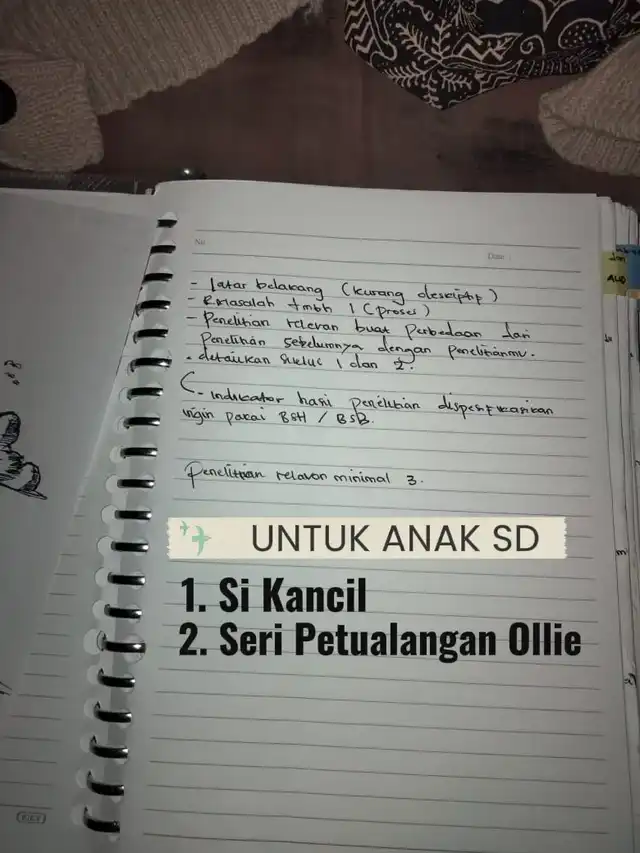 No
Date :
- latar belakang (kurang deskriptif)
- RMasalah tmbh 1 (proses)
- Penelitian relevan buat Perbedaan dari
Penelitian sebelumnya dengan penelitianmu.
- detailkan Siklus 1 dan 2.
- indikator hasil penelitian dispesifikasikan
ingin pakai BSH / BSB.
Penelitian relavan minimal 3.
UNTUK ANAK SD
1. Si Kancil
2. Seri Petualangan Ollie